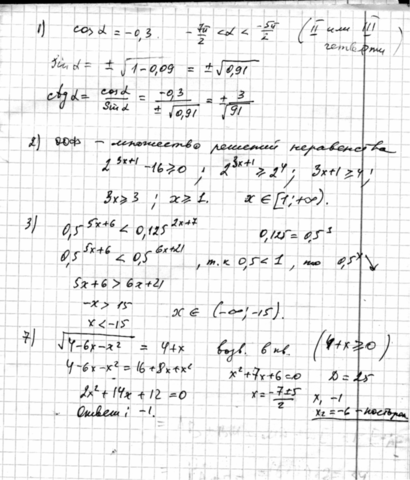 1) cos α = -0,3   -7π/2 < α < -5π/2   (II или III четверти)
sin α = ± √(1-0,09) = ± √0,91
ctg α = cos α / sin α = -0,3 / ± √0,91 = ± 3 / √91
2) ООФ - множество решений неравенства
2^(3x+1) - 16 ≥ 0 ; 2^(3x+1) ≥ 2^4 ; 3x+1 ≥ 4 ;
3x ≥ 3 ; x ≥ 1. x ∈ [1; +∞).
3) 0,5^(5x+6) < 0,125^(2x+7)   0,125 = 0,5^3
0,5^(5x+6) < 0,5^(6x+21) , т.к 0,5 < 1 , то 0,5^x ↘
5x+6 > 6x+21
-x > 15
x < -15   x ∈ (-∞; -15).
7) √(4-6x-x²) = 4+x   возв. в кв.   (4+x ≥ 0)
4-6x-x² = 16+8x+x²   x²+7x+6=0   D = 25
2x² + 14x + 12 = 0   x = (-7±5)/2   x₁ -1
Ответ: -1.   x₂ = -6 -